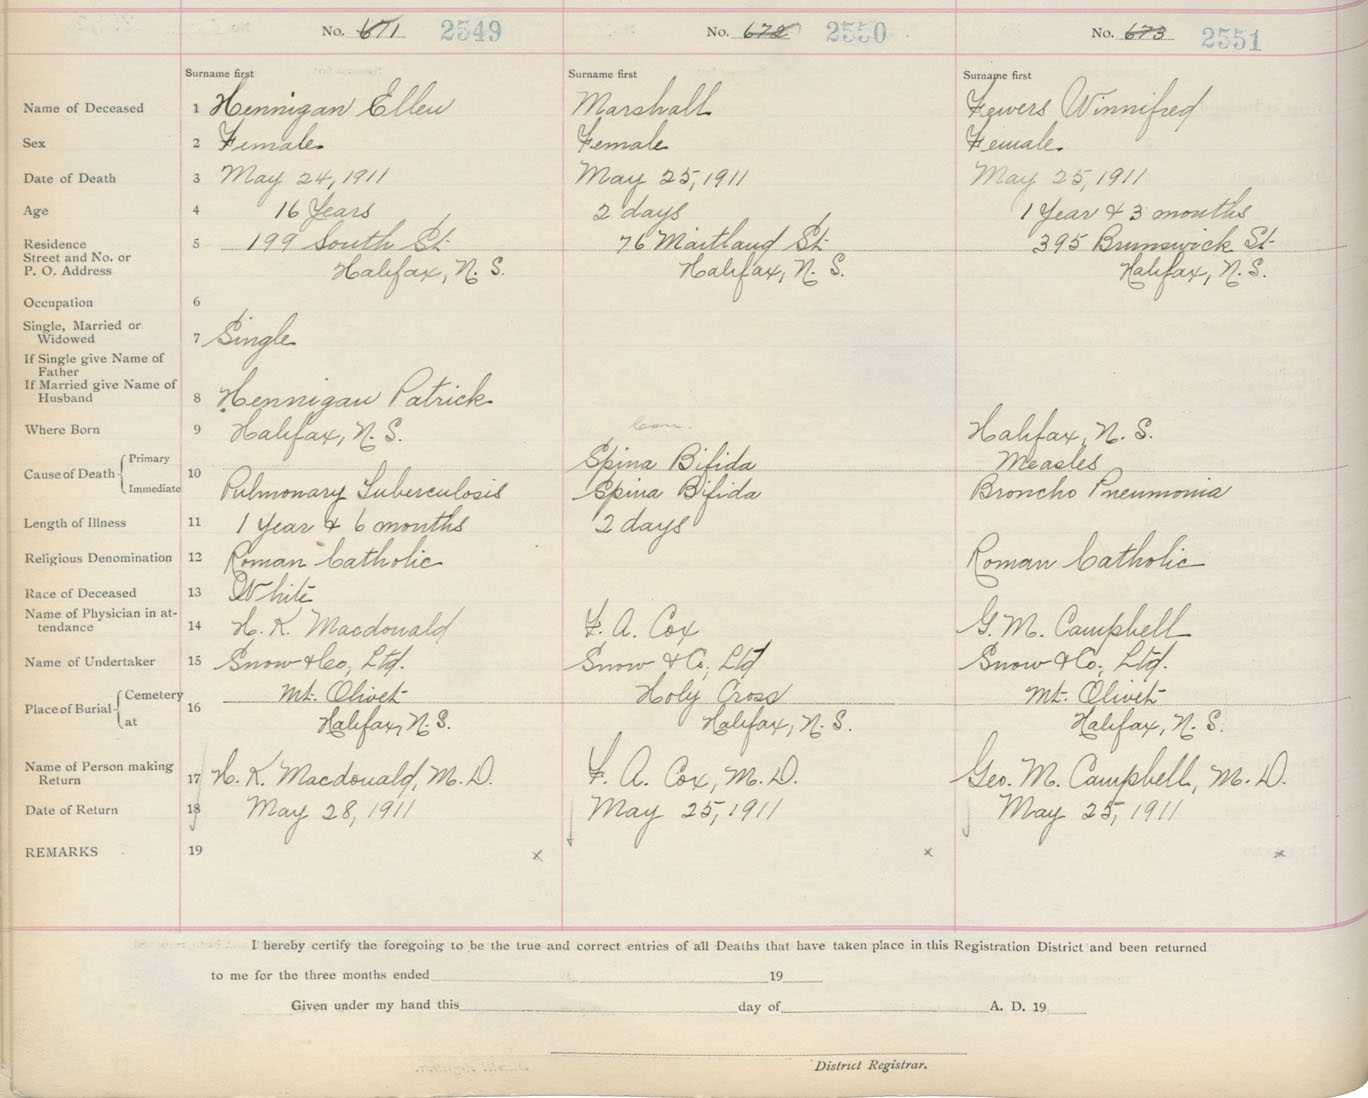 No. 671 2549 No. 672 2550 No. 673 2551
Surname first Surname first Surname first
Name of Deceased 1 Hennigan Ellen Marshall Fewers Winnifred
Sex 2 Female Female Female
Date of Death 3 May 24, 1911 May 25, 1911 May 25, 1911
Age 4 16 Years 2 days 1 Year & 3 months
Residence 5 199 South St. 76 Maitland St. 395 Brunswick St.
Street and No. or
P. O. Address Halifax, N. S. Halifax, N. S. Halifax, N. S.
Occupation 6
Single, Married or
Widowed 7 Single
If Single give Name of
Father
If Married give Name of
Husband 8 Hennigan Patrick
Where Born 9 Halifax, N. S. Can. Halifax, N. S.
Cause of Death Primary 10 Spina Bifida Measles
Immediate Pulmonary Tuberculosis Spina Bifida Broncho Pneumonia
Length of Illness 11 1 Year & 6 months 2 days
Religious Denomination 12 Roman Catholic Roman Catholic
Race of Deceased 13 White
Name of Physician in at-
tendance 14 H. K. Macdonald F. A. Cox G. M. Campbell
Name of Undertaker 15 Snow & Co, Ltd. Snow & Co, Ltd Snow & Co, Ltd.
Place of Burial Cemetery 16 Mt. Olivet Holy Cross Mt. Olivet
at Halifax, N. S. Halifax, N. S. Halifax, N. S.
Name of Person making
Return 17 H. K. Macdonald, M. D. F. A. Cox, M. D. Geo. M. Campbell, M. D.
Date of Return 18 May 28, 1911 May 25, 1911 May 25, 1911
REMARKS 19 x x x
I hereby certify the foregoing to be the true and correct entries of all Deaths that have taken place in this Registration District and been returned
to me for the three months ended 19
Given under my hand this day of A. D. 19
District Registrar.